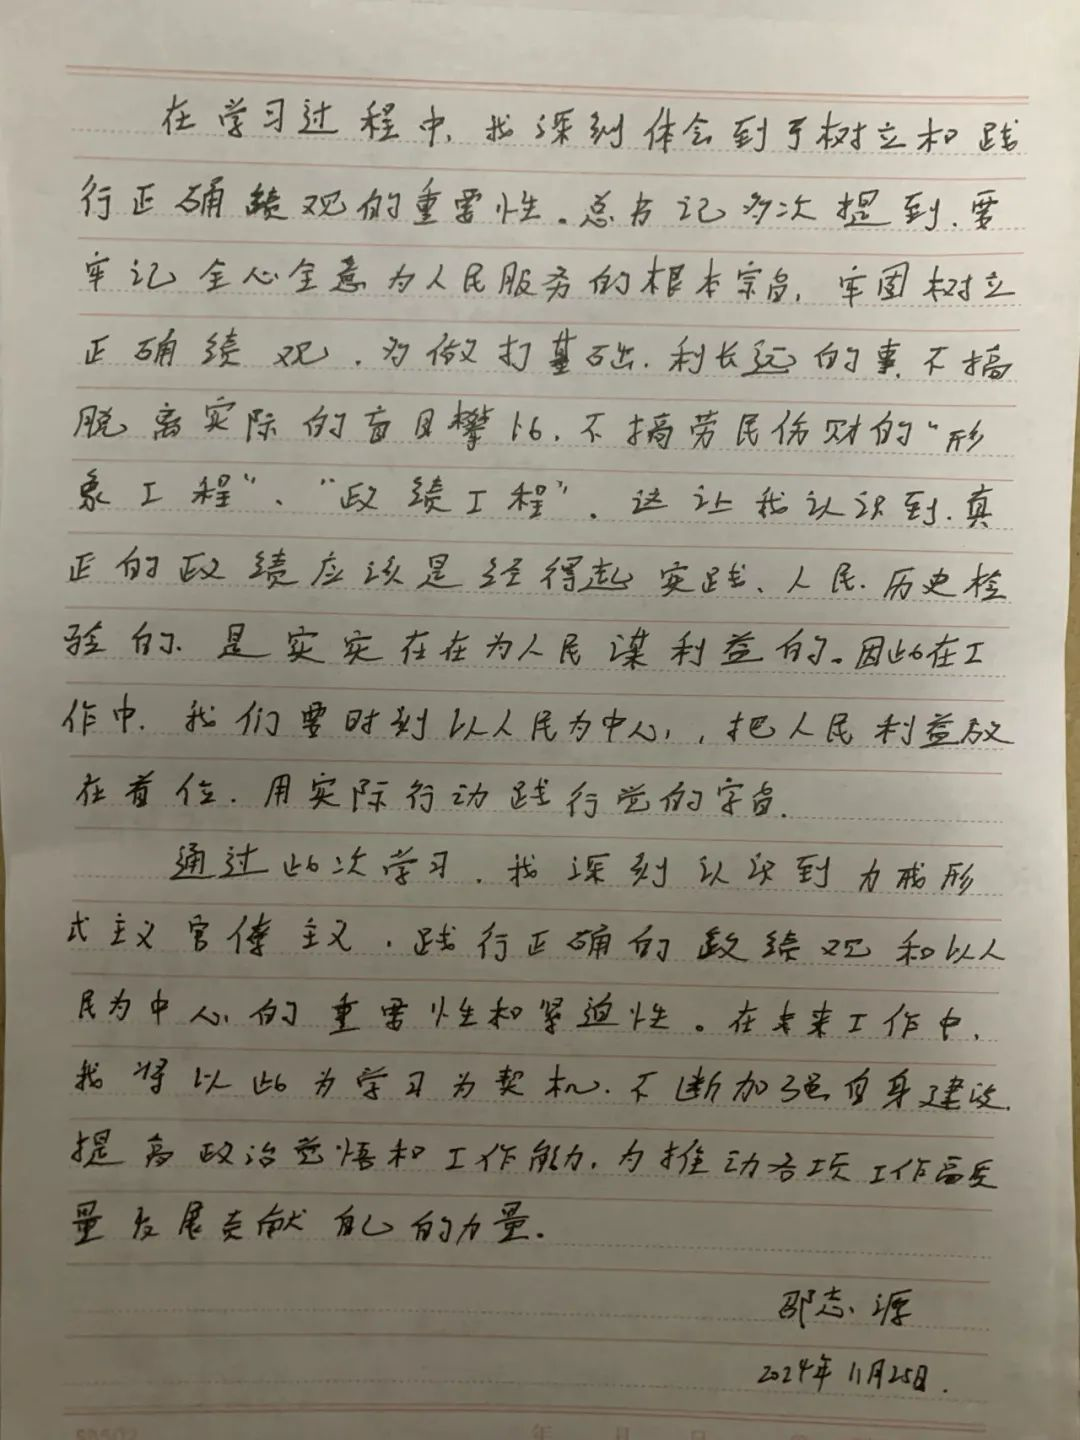 在学习过程中,我深刻体会到了树立和践
行正确绩观的重要性。总书记多次提到,要
牢记全心全意为人民服务的根本宗旨,牢固树立
正确绩观,多做打基础、利长远的事,不搞
脱离实际的盲目攀比,不搞劳民伤财的“形
象工程”、“政绩工程”。这让我认识到,真
正的政绩应该是经得起实践、人民、历史检
验的、是实实在在为人民谋利益的。因此在工
作中,我们要时刻以人民为中心,,把人民利益放
在首位,用实际行动践行党的宗旨.
通过此次学习,我深刻认识到力戒形
式主义官僚主义,践行正确的政绩观和以人
民为中心的重要性和紧迫性。在未来工作中,
我将以此为学习为契机,不断加强自身建设,
提高政治觉悟和工作能力,为推动各项工作高质
量发展贡献自己的力量。
邵志源
2024年11月25日.
SD502
年 月 日